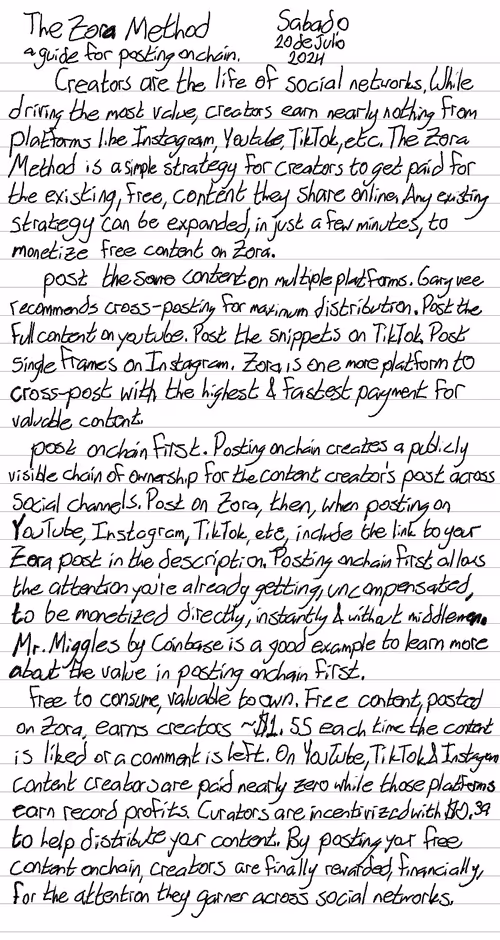 The Zora Method
Sabado
a guide for posting onchain.
20 de Julio
2024
Creators are the life of social networks. While
driving the most value, creators earn nearly nothing from
platforms like Instagram, Youtube, TikTok, etc. The Zora
Method is a simple strategy for creators to get paid for
the existing, free, content they share online. Any existing
strategy can be expanded, in just a few minutes, to
monetize free content on Zora.
post the same content on multiple platforms. Garyvee
recommends cross-posting for maximum distribution. Post the
full content on youtube. Post the snippets on TikTok. Post
single frames on Instagram. Zora is one more platform to
cross-post with the highest & fastest payment for
valuable content.
post onchain first. Posting onchain creates a publicly
visible chain of ownership for the content creator's post across
social channels. Post on Zora, then, when posting on
YouTube, Instagram, TikTok, etc, include the link to your
Zora post in the description. Posting onchain first allows
the attention you're already getting, uncompensated,
to be monetized directly, instantly & without middlemen.
Mr. Miggles by Coinbase is a good example to learn more
about the value in posting onchain first.
Free to consume, valuable to own. Free content, posted
on Zora, earns creators ~$1.55 each time the content
is liked or a comment is left. On YouTube, TikTok & Instagram
content creators are paid nearly zero while those platforms
earn record profits. Curators are incentivized with $0.39
to help distribute your content. By posting your free
content onchain, creators are finally rewarded, financially,
for the attention they garner across social networks.